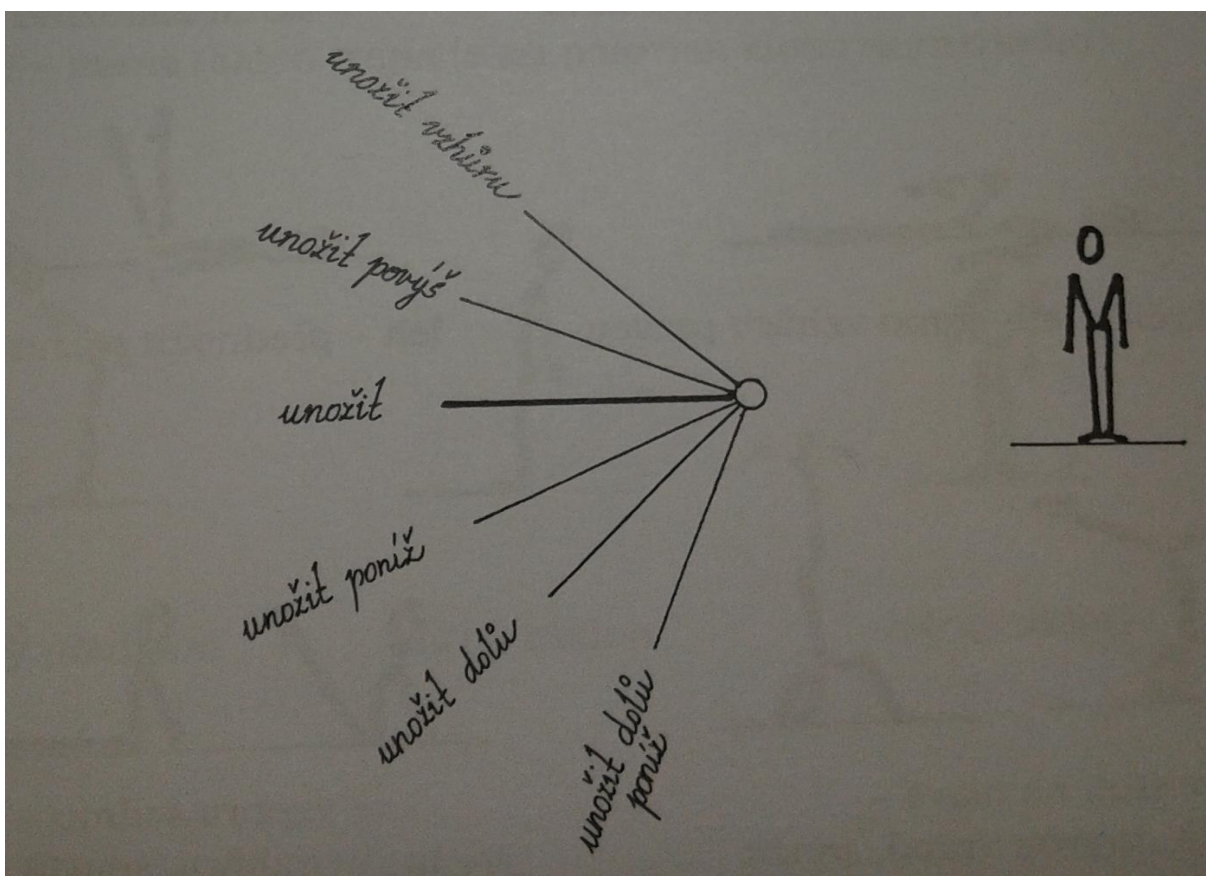 unožit vzhůru
unožit povýš
unožit
unožit poníž
unožit dolů
unožit dolů
poníž